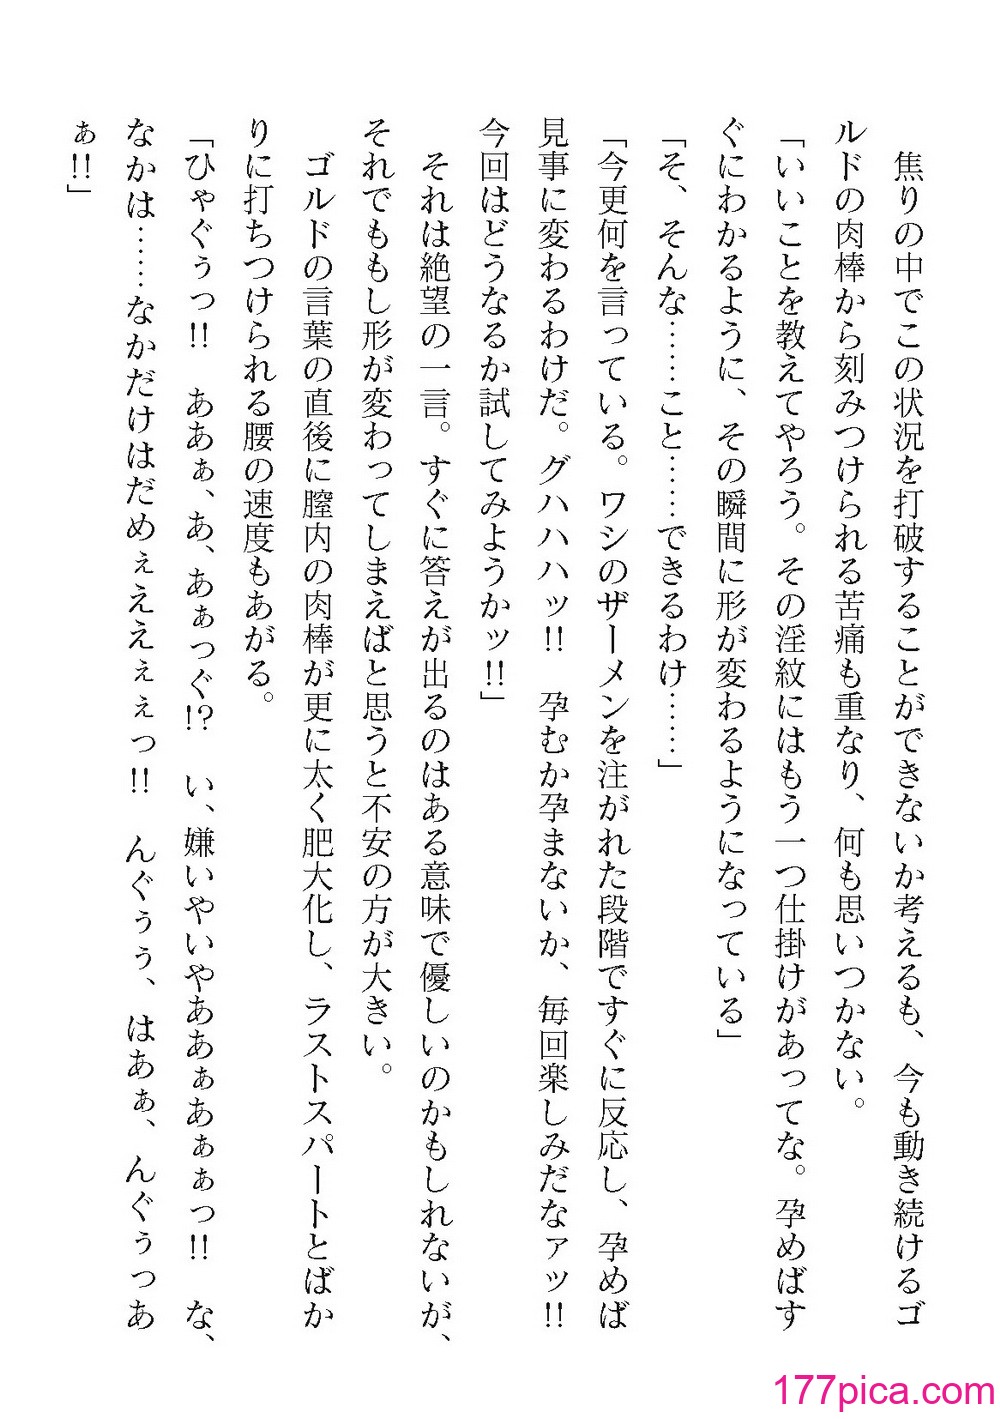 焦りの中でこの状況を打破することができないか考えるも、今も動き続けるゴ
ルドの肉棒から刻みつけられる苦痛も重なり、何も思いつかない。
「いいことを教えてやろう。その淫紋にはもう一つ仕掛けがあってな。孕めばす
ぐにわかるように、その瞬間に形が変わるようになっている」
「そ、そんな……こと……できるわけ……」
「今更何を言っている。ワシのザーメンを注がれた段階ですぐに反応し、孕めば
見事に変わるわけだ。グハハハッ!!　孕むか孕まないか、毎回楽しみだなァッ!!
今回はどうなるか試してみようかッ!!」
それは絶望の一言。すぐに答えが出るのはある意味で優しいのかもしれないが、
それでももし形が変わってしまえばと思うと不安の方が大きい。
ゴルドの言葉の直後に膣内の肉棒が更に太く肥大化し、ラストスパートとばか
りに打ちつけられる腰の速度もあがる。
「ひゃぐぅっ!!　ああぁ、あ、あぁっぐ!?　い、嫌いやいやああぁあぁぁっ!!　な、
なかは……なかだけはだめぇええぇぇっ!!　んぐぅぅ、はあぁ、んぐぅっあ
ぁ!!」
177pica.com